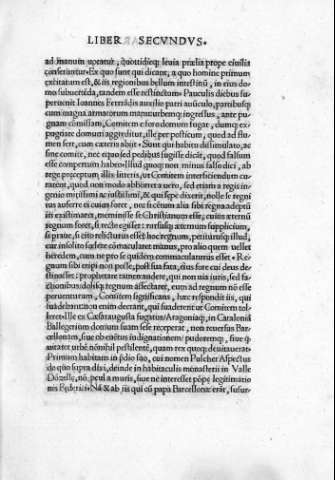 LIBER SECVNDVS.
ad manum uocatur, quottidieq; leuia prælia prope ciuilia
conseriantur. Ex quo sunt qui dicant, a quo homine primum
excitatum est, & iis regionibus bellum intestinũ, in eius do
mo subuertẽda, tandem esse restinctum. Pauculis diebus su
peruenit Ioannes Ferrãdis auxilio patri auũculo, partibusq;
cum magna armatorum manu in urbem ingressus, ante pu
gnam comissam, Comitem e foro domum fugat, dumq; ex
pugnare domum aggreditur, ille per posticum, quod ad flu
men fert, cum cæteris abiit. Sunt qui habitu dissimulato, ac
sine comite, nec equo sed pedibus fugisse dicãt, quod falsum
esse compertum habeo. Illud quoq; non minus falso dici, ab
rege præceptum illis litteris, ut Comitem interficiendum cu
rarent, quod non modo abhorret a uero, sed etiam a regis in
genio mitissimi ac iustissimi, & qui sæpe dixerit, nolle se regni
ius auferre ei cuius foret, nec scelerum alia sibi regna adeptũ
iri existimaret, meminisse se Christianum esse, cui in æternũ
regnum foret, si recte egisset: rursusq; æternum supplicium,
si praue, si cito relicturus esset hoc regnum, periturusq; illud,
cur insolito scelere cõmacularet manus, pro alio quem uellet
hæredem, cum ne pro se quidem commacularus esset. Re
gnum sibi eripi non posse, post sua fata, eius fore cui deus de
stinasset: propterea eam euadere, qui non uia iuris, sed fa
ctionibus dolisq; regnum affectaret, eum ad regnum nõ esse
peruenturum, Comitem significans, hæc respondit iis, qui
suadebant, non enim deerant, qui suaderent ut Comitem tol
leret. Ille ex Cæsaraugusta fugatus Aragoniaq;, in Cataloniã
Ballegerium domum suam sese receperat, non reuersus Bar
cellonam, siue ob exitus indignationem pudoremq;, siue q
uitaret urbẽ nõnihil pestilentẽ, quam rex quoq; deuitauerat.
Primum habitans in pdio suo, cui nomen Pulcher Aspectus
de quo supra dixi, deinde in habitaculis monasterii in Valle
Dõzelle, nõ procul a muris, siue ne interesset põpe legitimatio
nis Federici. Nã & ab iis qui cũ papa Barcellonæ erãt, susur-